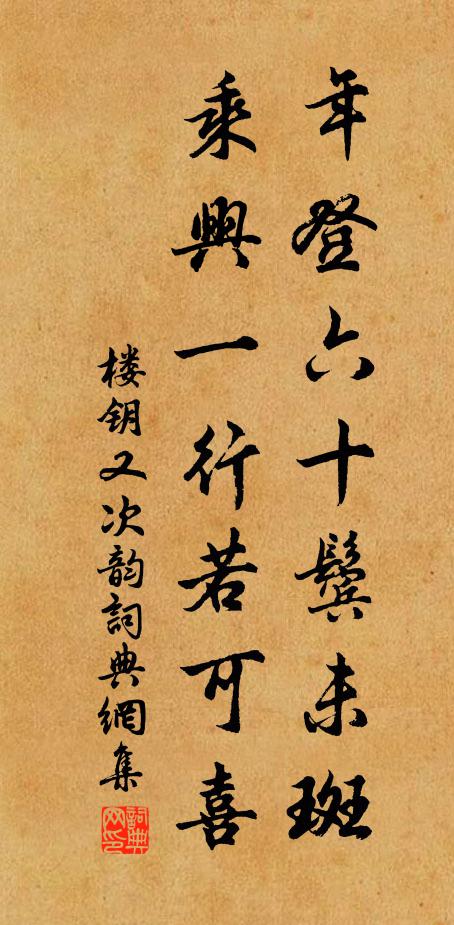 年登六十鬓未斑
乘興一行若可喜
楼钥又次韵詞典網集
詞典网印